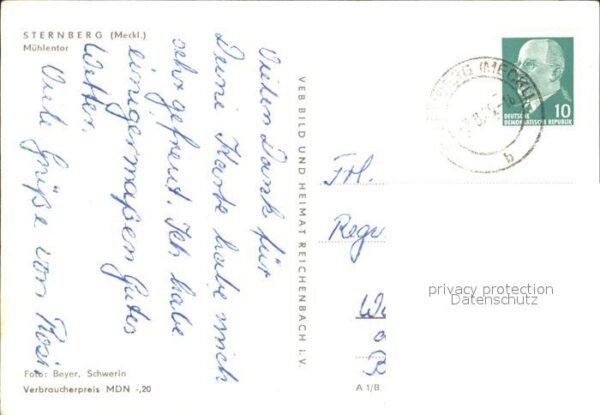 STERNBERG (Meckl.)
Mühlentor
Vielen Dank für
Deine Karte habe mich
sehr gefreut. Ich habe
einigermaßen Gutes
Wetter.
Viele Grüße von Rosi.
Foto: Beyer, Schwerin
Verbraucherpreis MDN -,20
VEB BILD UND HEIMAT REICHENBACH i. V.
A 1/B
(MECKL
b
10
DEUTSCHE
DEMOKRATISCHE REPUBLIK
Frl.
Reg
privacy protection
Datenschutz